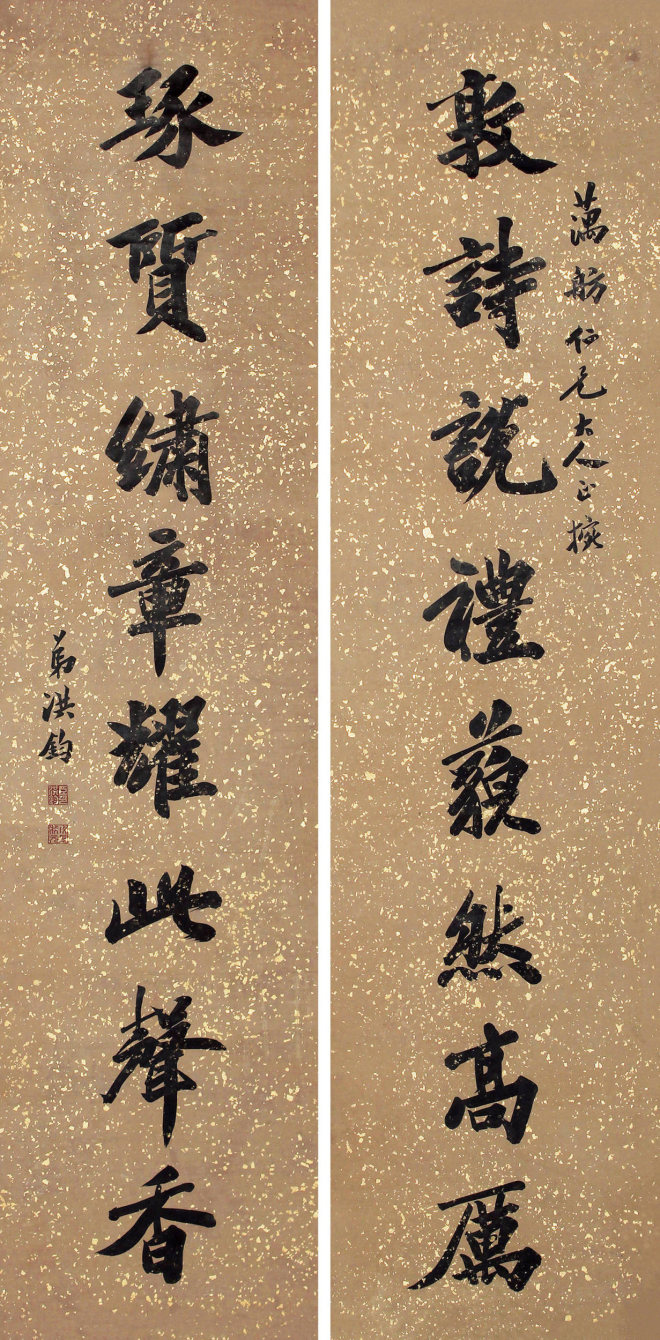 藕舫仁兄大人正掾
敦詩說禮藐然高厲
琢質繡章耀此聲香
弟洪鈞